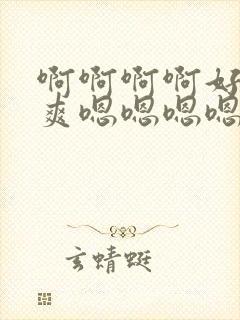 啊啊啊啊好
爽嗯嗯嗯嗯
玄蜻蜓